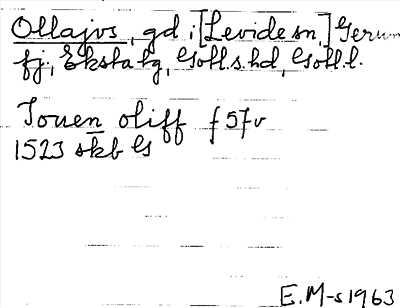 Ollajvs, gd i [Levide sn,] Gerum
fj, Eksta tg, Gotl.s.hd, Gotl.l.
Jouen oliff f 57v
1523 skb G
E.M-s 1963